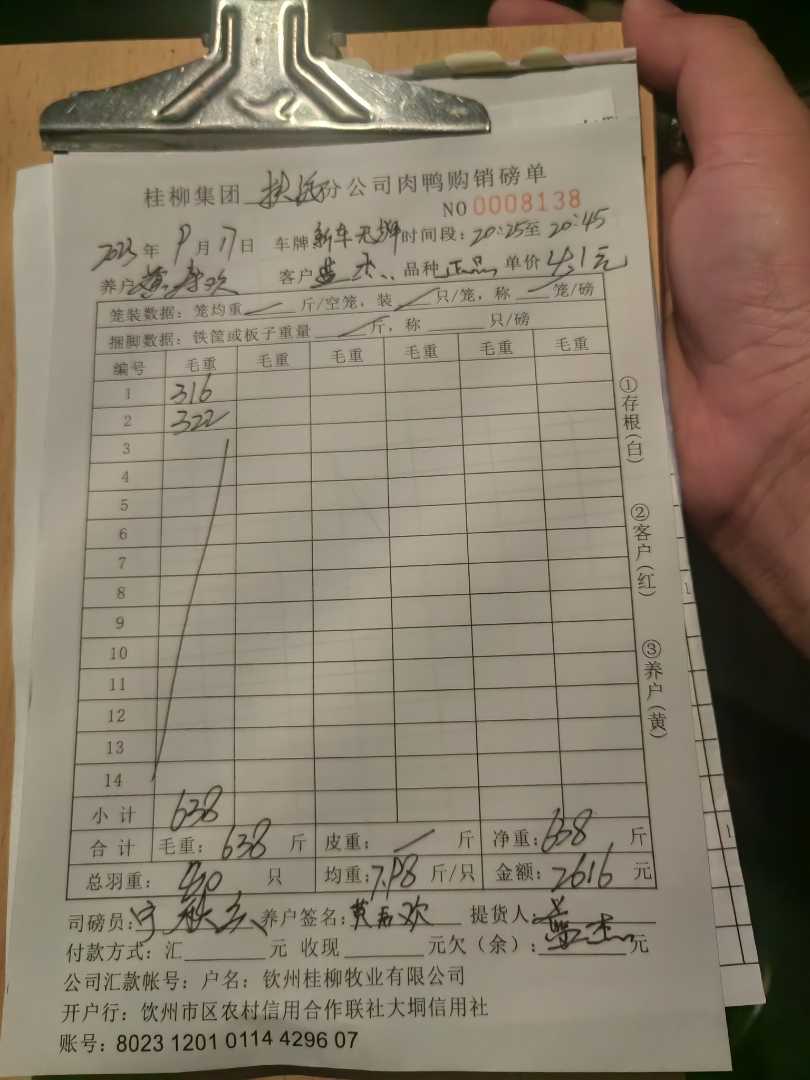 桂柳集团 分公司肉鸭购销磅单
NO 0008138
2023年 9月17日 车牌 新车无牌 时间段：20:25至20:45
养户 黄 欢 客户 蓝杰 品种 正品 单价 4.1元
笼装数据：笼均重 斤/空笼，装 只/笼，称 笼/磅
捆脚数据：铁筐或板子重量 斤，称 只/磅
编号 毛重 毛重 毛重 毛重 毛重 毛重
1 316
2 322
3
4
5
6
7
8
9
10
11
12
13
14
小计 638
合计 毛重：638 斤 皮重： 斤 净重：638 斤
总羽重： 只 均重：7.98 斤/只 金额：2616 元
司磅员： 养户签名：黄 欢 提货人：蓝杰
付款方式：汇 元 收现 元欠（余）： 元
公司汇款帐号：户名：钦州桂柳牧业有限公司
开户行：饮州市区农村信用合作联社大垌信用社
账号：8023 1201 0114 4296 07
①存根(白)
②客户(红)
③养户(黄)